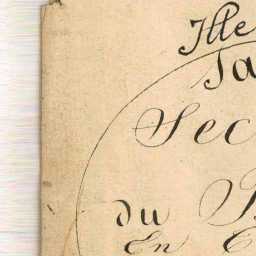 Ille
Sa
Sec
du
En